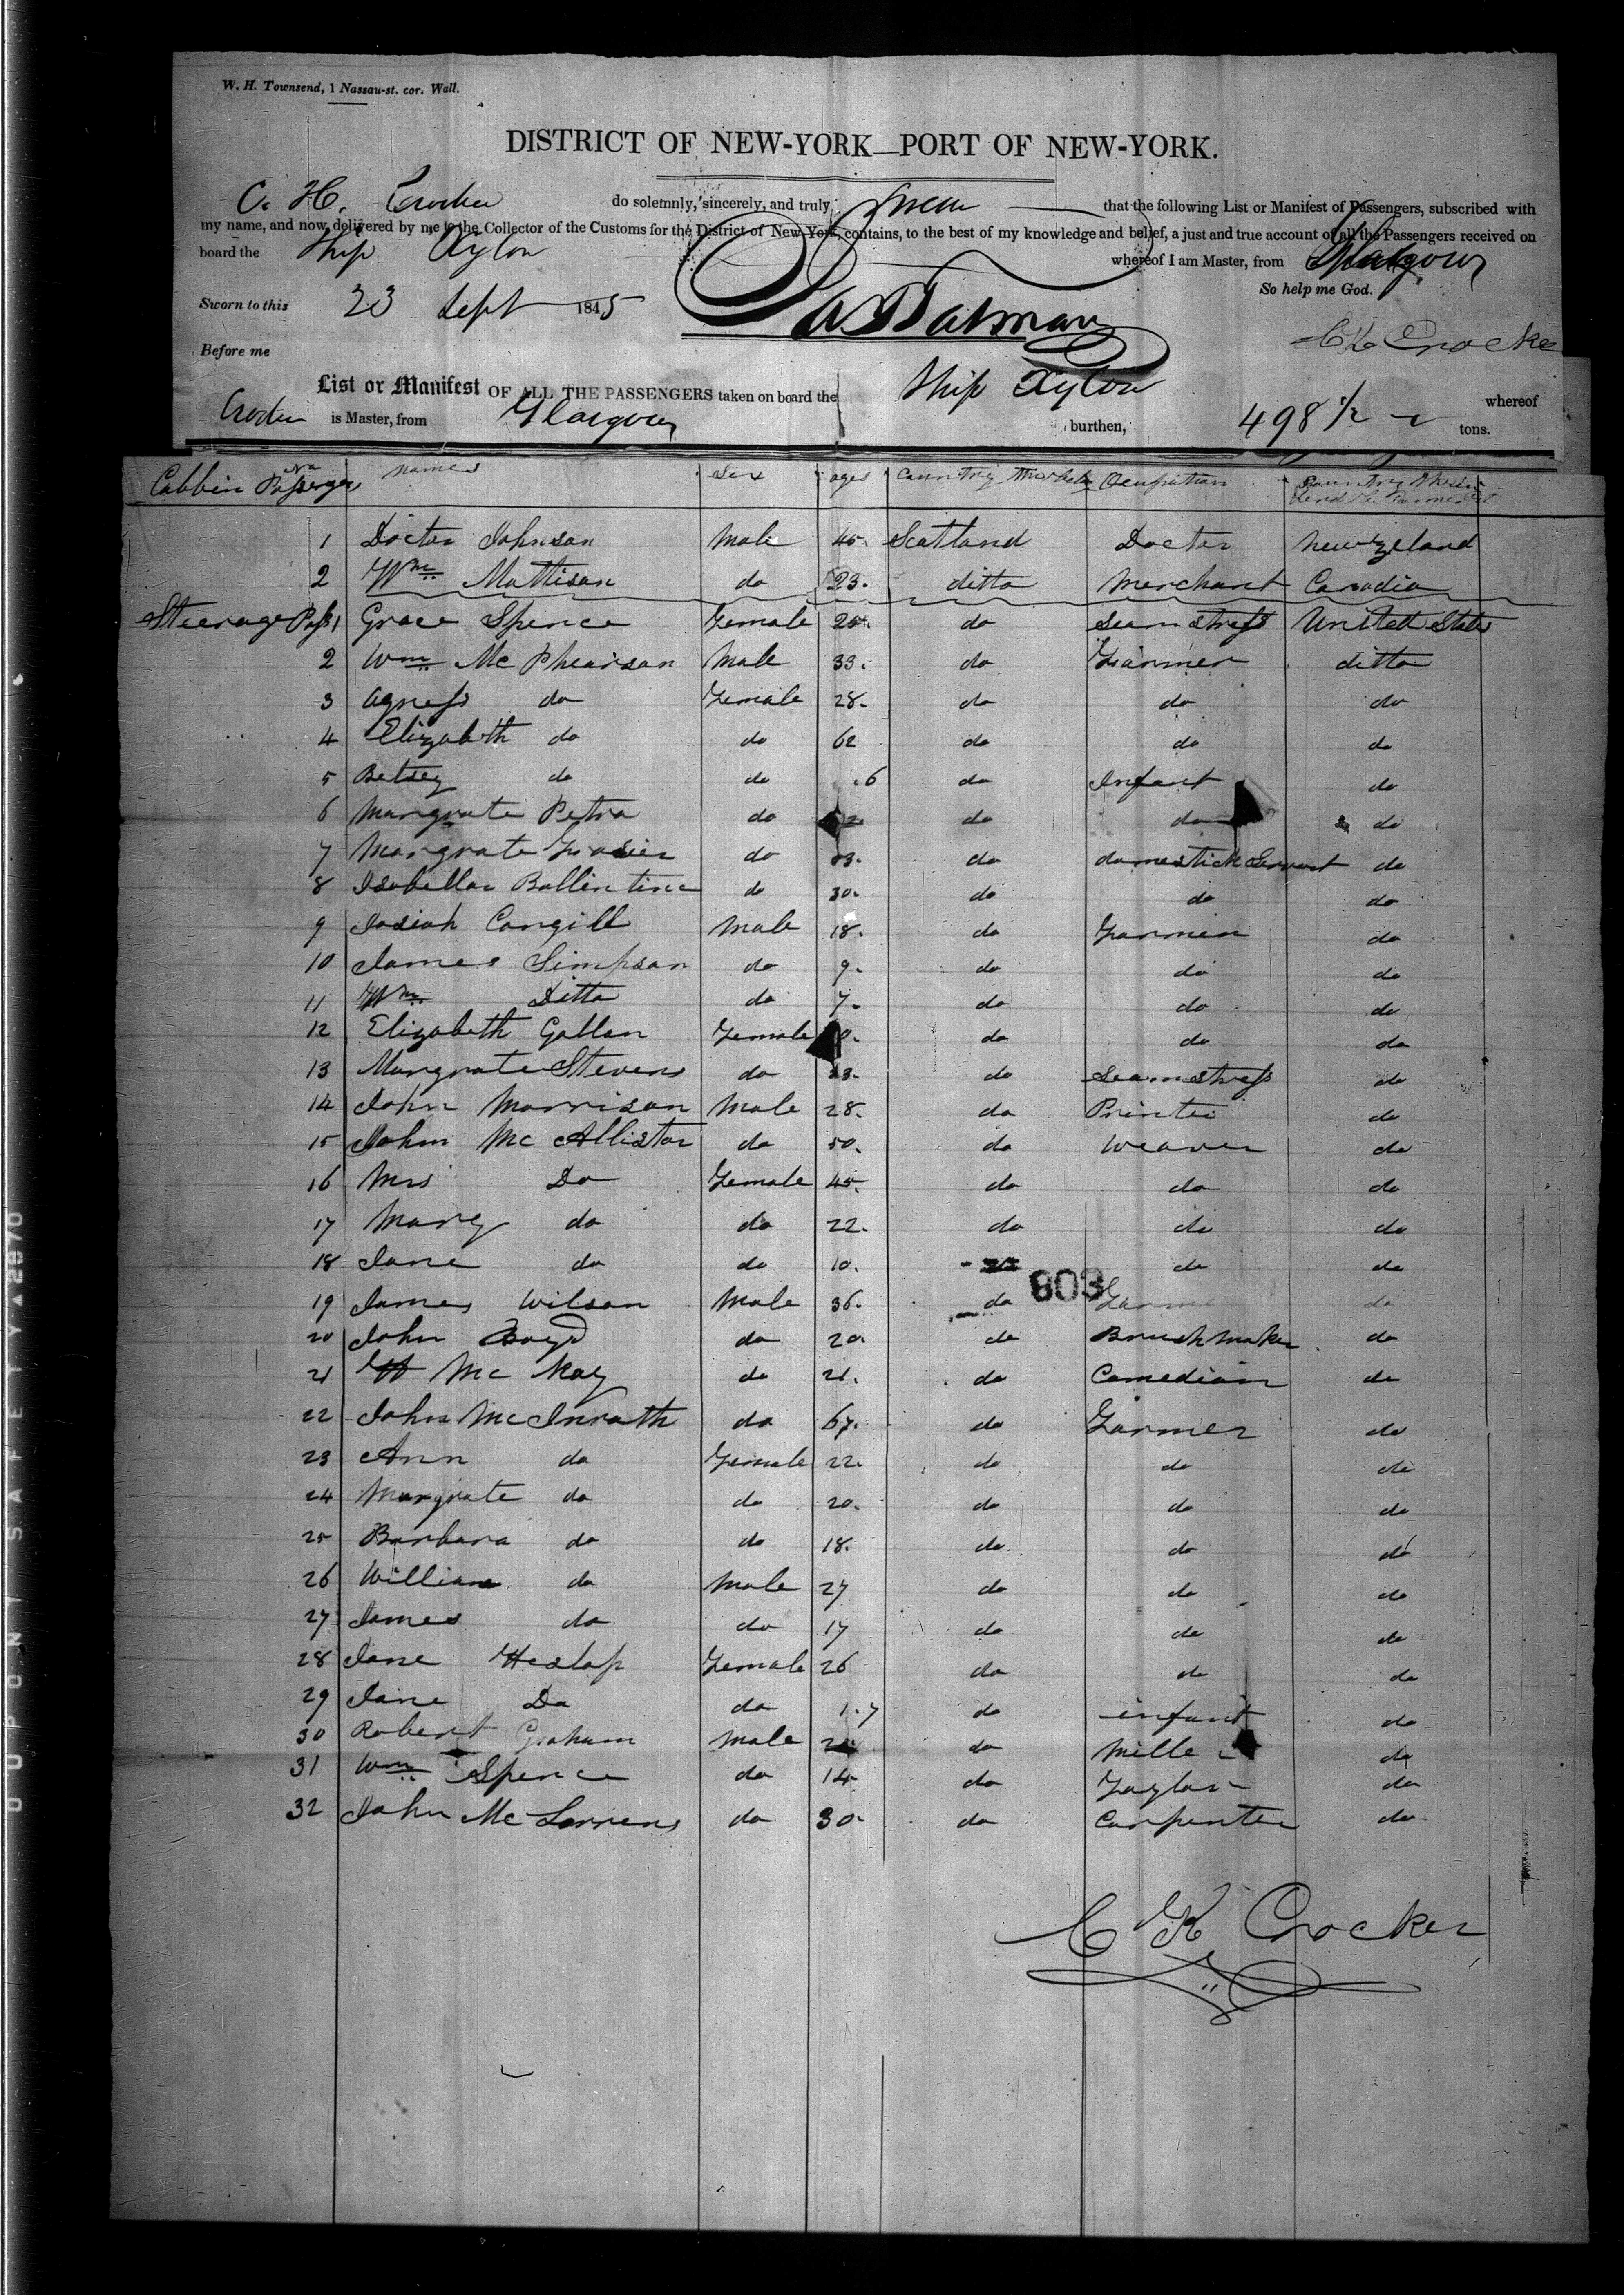 W. H. Townsend, 1 Nassau-st. cor. Wall.
DISTRICT OF NEW-YORK—PORT OF NEW-YORK.
C. H. Crocker do solemnly, sincerely, and truly Swear that the following List or Manifest of Passengers, subscribed with
my name, and now delivered by me to the Collector of the Customs for the District of New-York, contains, to the best of my knowledge and belief, a just and true account of all the Passengers received on
board the Ship Xylon whereof I am Master, from Glasgow
So help me God.
Sworn to this 23 Sept 1845
C K Crocker
Before me
List or Manifest OF ALL THE PASSENGERS taken on board the Ship Xylon whereof
Crocker is Master, from Glasgow burthen, 498 1/2 tons.
Cabbin Passengers No names Sex ages Country Occupation
1 Docter Johnson Male 45 Scotland Doctor New Zeland
2 Wm Mattison do 23. ditto Merchant Canadia
Steerage Pass 1 Grace Spence Female 25. do Seamstress Unitett States
2 Wm Mc Phearson Male 33. do Farmer ditto
3 Agness do Female 28. do do do
4 Elizabeth do do 62 do do do
5 Betsey do do .6 do Infant do
6 Margrate Petra do do do do
7 Margrate Frasier do do domestick Servant do
8 Isabellar Ballintine do 30. do do do
9 Josiah Cargill Male 18. do Farmer do
10 James Simpson do 9. do do do
11 Wm Ditto do 7. do do do
12 Elizabeth Gallan Female do do do
13 Margrate Stevens do 23. do Seamstress do
14 John Morrison Male 28. do Printer do
15 John Mc Allistar do 50. do Weaver do
16 Mrs Do Female 45. do do do
17 Mary do do 22. do do do
18 Jane do do 10. do do
803
19 James Wilson Male 36. do Farmer do
20 John Boyd do 20. do Brushmaker do
21 Mc Kay do 21. do Comedian do
22 John McInrath do 67. do Farmer do
23 Ann do Female 22. do do do
24 Margrate do do 20. do do do
25 Barbara do do 18. do do do
26 William do Male 27 do do do
27 James do do 17 do do do
28 Jane Heslop Female 26 do do do
29 Jane Do do 1.7 do infant do
30 Robert Graham Male do Miller do
31 Wm Spence do 14 do Taylor do
32 John Mc Lorrens do 30. do Carpenter do
C K Crocker
DUPONT SAFETY